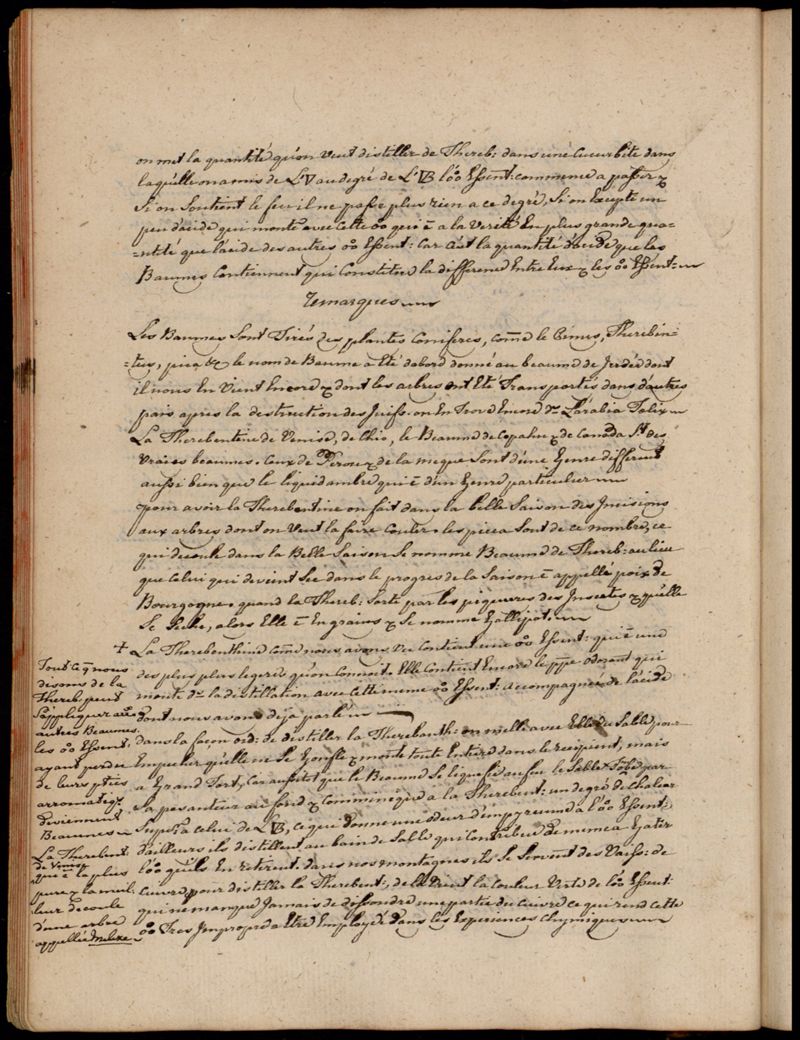 on met la quantité qu'on veut distiller de Thereb: dans une Cucurbite dans
laquelle on a mis de L'▽ au degré de L'▽B l'oo Essent: commence a passer &
Si on Soutient le feu il ne passe plus rien a ce degré, Si on Excepte un
peu d'acide qui monte avec cette oo qui ē a la Verité En plus grande qua-
-ntité que l'acide des autres oo Essent: Car c'est la quantité d'acide que les
Baumes Contiennent qui Constitue la difference Entre Eux & les oo Essent:
Remarques
Les Baumes Sont Tirés des plantes Coniferes, com̄e le Therebin-
-tes, picea &c le nom de Baume a été d'abord donné au beaume de Judée dont
il nous En Vient Encore & dont les arbres ont Eté Transportés dans d'autres
païs après la destruction des Juifs. on En Trouve Encore dns L'arabia Felix
La Therebentine de Venise, de Chio, le Beaume de Copahu & de Canada St des
Vraies beaumes. Ceux de Perou & de la meque Sont d'une Genre different
aussi bien que le liquidambre qui ē d'un Genre particulier
pour avoir la Therebentine on fait dans la belle Saison des Incisions
aux arbres dont on Veut la faire Couler. les picea Sont de ce nombre, ce
qui decoule dans la Belle Saison Se nomme Beaume de Thereb: au lieu
que Celui qui devient Sec dans le progres de la Saison ē appellé poix de
Bourgogne. quand la Thereb: Sorte par les piqueures des Insectes & qu'elle
Se Seche, alors Elle ē En grains & Se nomme Gallipot:
+ La Therebenthine com̄e nous avons Vu Contient une oo Essent: qui ē une
des plus plus legere qu'on Connoit. Elle Contient Encore le ppe odorant qui
monte dns la distillation avec cette meme oo Essent: accompagnée de l'acide
dont nous avons deja parlé
dans la façon ord: de distiller la Therebenth: on melle avec Elle du Sable pour
Empecher qu'elle ne Se Gonfle & monte toute Entiere dans le recipient, mais
a Grand Tort, Car aussitot que le Beaume Se liquefie au feu le Sable Tombe par
Sa pesanteur au fond & Comminique a la Therebent: un degré de Chaleur
Super a celui de L'▽B, ce que donne une odeur d'empyreume a l'oo Essent:
d'ailleurs ils distillent au bain de Sable qui Contribue de meme a Gater
l'oo qu'ils En retirent. dans nos montagnes ils Se Servent des Vaiss: de
Cuivre pour distiller la Therebent:, de la Vient la Couleur Verte de l'oo Essent:
qui ne manque Jamais de dissoudre une partie du Cuivre ce qui rend cette
oo Tres Impropre a Etre Employée dans les Experiences chymiques
Tout ce q̄ nous
disons de la
Thereb. peut
S'appliquer aux
autres Beaumes.
les oo Essent.
ayant perdu
de leurs pties
arromatiqs
deviennent
Beaumes
La Therebent:
de Venise
qui ē la plus
pure & la meil-
leur decoule
d'une arbre
appellée Meleze